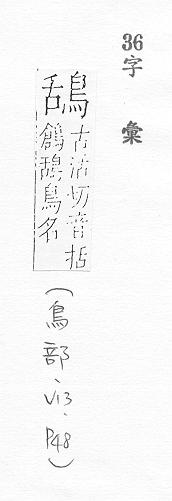 36字 彙
鴰
古活切音括
鶬鴰鳥名
(鳥部、V13、P48)